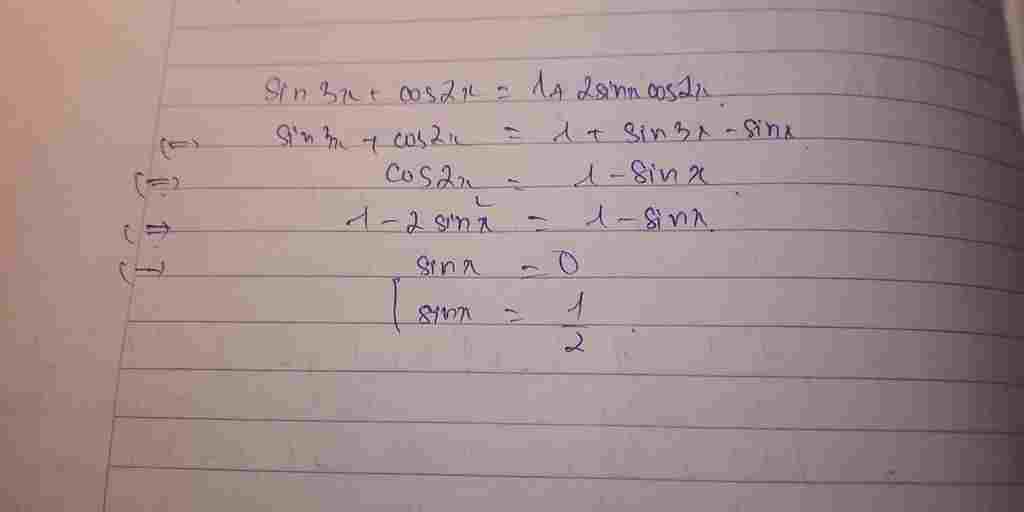 sin 3x + cos2x = 1 + 2sinx cos2x
(=) sin 3x + cos2x = 1 + sin 3x - sinx
(=) cos2x = 1 - sin x
(=) 1 - 2 sin²x = 1 - sinx
(=) sinx = 0
[ sinx = 1/2